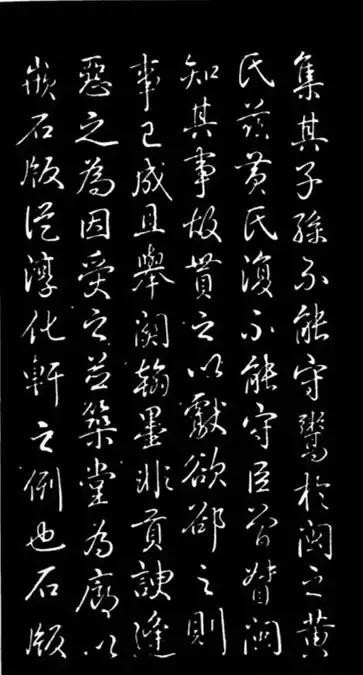 集其子孫不能守鬻於閩之黄
氏茲黄氏復不能守臣曾督閩
知其事故買之以獻欲郤之則
事已成且舉關翰墨非貢諛逢
惡之為因受之並築堂為廊以
嵌石版從淳化軒之例也石版